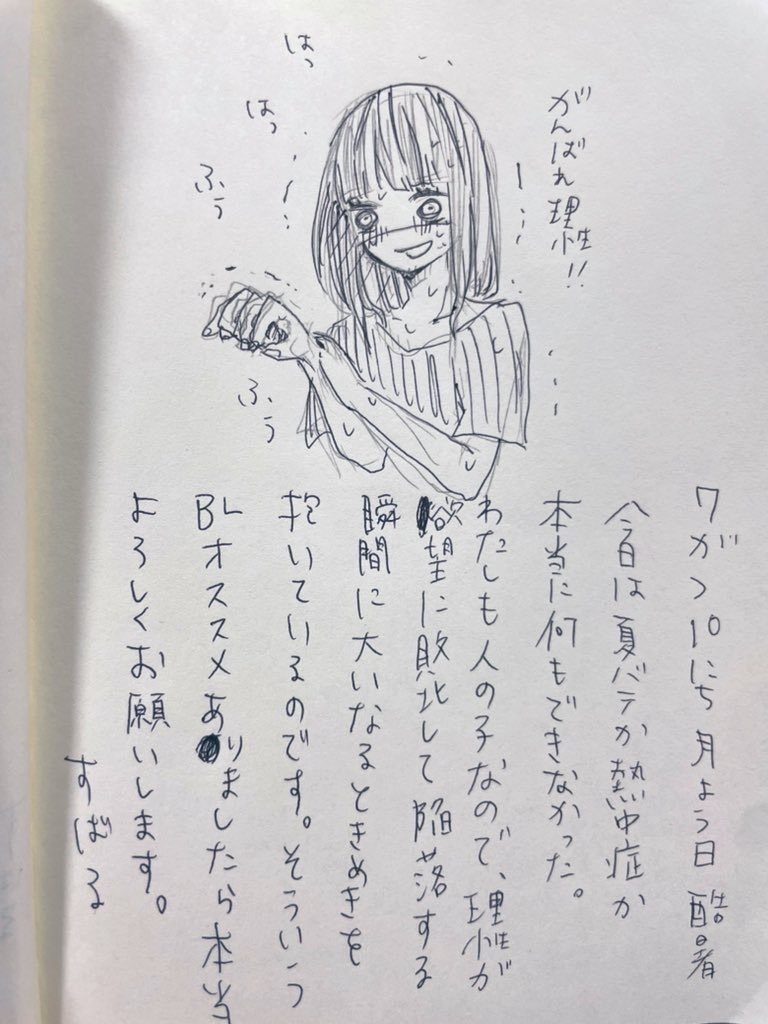 がんばれ理性!!
はっ
はっ
ふぅ
ふぅ
7がつ18にち 月よう日 酷暑
今日は夏バテか熱中症か
本当に何もできなかった。
わたしも人の子なので、理性が
欲望に敗北して陥落する
瞬間に大いなるときめきを
抱いているのです。そういう
BLオススメありましたら本当
よろしくお願いします。
すばる